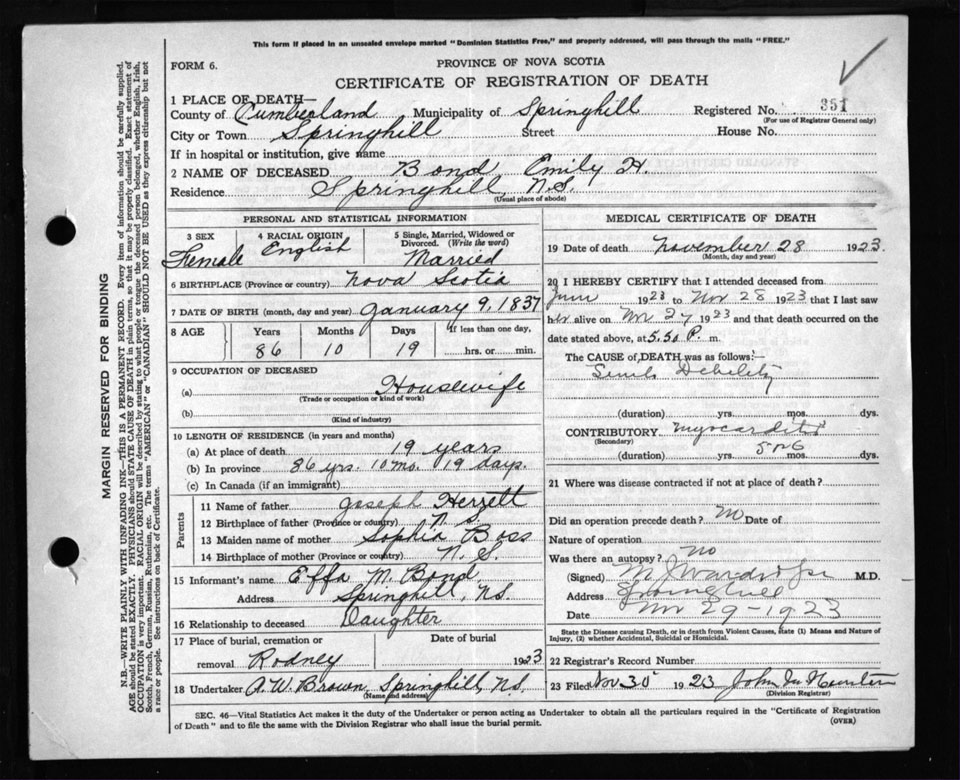 This form if placed in an unsealed envelope marked "Dominion Statistics Free," and properly addressed, will pass through the mails "FREE."
FORM 6.
PROVINCE OF NOVA SCOTIA
CERTIFICATE OF REGISTRATION OF DEATH
1 PLACE OF DEATH—
County of Cumberland Municipality of Springhill Registered No. 351
(For use of Registrar General only)
City or Town Springhill Street House No.
If in hospital or institution, give name
2 NAME OF DECEASED Bond Emily H.
Residence Springhill, N.S.
(Usual place of abode)
PERSONAL AND STATISTICAL INFORMATION
3 SEX 4 RACIAL ORIGIN 5 Single, Married, Widowed or Divorced. (Write the word)
Female English Married
6 BIRTHPLACE (Province or country) Nova Scotia
7 DATE OF BIRTH (month, day and year) January 9, 1837
8 AGE Years Months Days If less than one day,
86 10 19 ......hrs. or ...... min.
9 OCCUPATION OF DECEASED
(a) Housewife
(Trade or occupation or kind of work)
(b)
(Kind of industry)
10 LENGTH OF RESIDENCE (in years and months)
(a) At place of death 19 years
(b) In province 86 yrs. 10 mo. 19 days.
(c) In Canada (if an immigrant)
Parents
11 Name of father Joseph Herrett
12 Birthplace of father (Province or country) N.S.
13 Maiden name of mother Sophia Boss
14 Birthplace of mother (Province or country) N.S.
15 Informant's name Effa M. Bond
Address Springhill, N.S.
16 Relationship to deceased Daughter
17 Place of burial, cremation or removal Rodney Date of burial 1923
18 Undertaker A.W. Brown, Springhill, N.S.
(Name and address)
MEDICAL CERTIFICATE OF DEATH
19 Date of death November 28 1923.
(Month, day and year)
20 I HEREBY CERTIFY that I attended deceased from
June 1923 to Nov 28 1923 that I last saw
her alive on Nov 27 1923 and that death occurred on the
date stated above, at 5.50 P. m.
The CAUSE OF DEATH was as follows:—
Senile Debility
(duration) yrs. mos. dys.
CONTRIBUTORY Myocarditis
(Secondary)
(duration) yrs. mos. dys.
21 Where was disease contracted if not at place of death?
Did an operation precede death? No Date of
Nature of operation
Was there an autopsy? No
(Signed) M.D.
Address Springhill
Date Nov 29-1923
State the Disease causing Death, or in death from Violent Causes, state (1) Means and Nature of Injury, (2) whether Accidental, Suicidal or Homicidal.
22 Registrar's Record Number
23 Filed Nov 30 1923
(Division Registrar)
SEC. 46—Vital Statistics Act makes it the duty of the Undertaker or person acting as Undertaker to obtain all the particulars required in the "Certificate of Registration
of Death" and to file the same with the Division Registrar who shall issue the burial permit. (OVER)
MARGIN RESERVED FOR BINDING
N.B.—WRITE PLAINLY WITH UNFADING INK—THIS IS A PERMANENT RECORD. Every item of information should be carefully supplied.
AGE should be stated EXACTLY. PHYSICIANS should STATE CAUSE OF DEATH in plain terms, so that it may be properly classified. Exact statement of
OCCUPATION is very important. RACIAL ORIGIN will be described by stating to what people or tongue the deceased person belonged, whether English, Irish,
Scotch, French, German, Russian, Ruthenian, etc. The terms "AMERICAN" or "CANADIAN" SHOULD NOT BE USED as they express citizenship but not
a race or people. See instructions on back of Certificate.